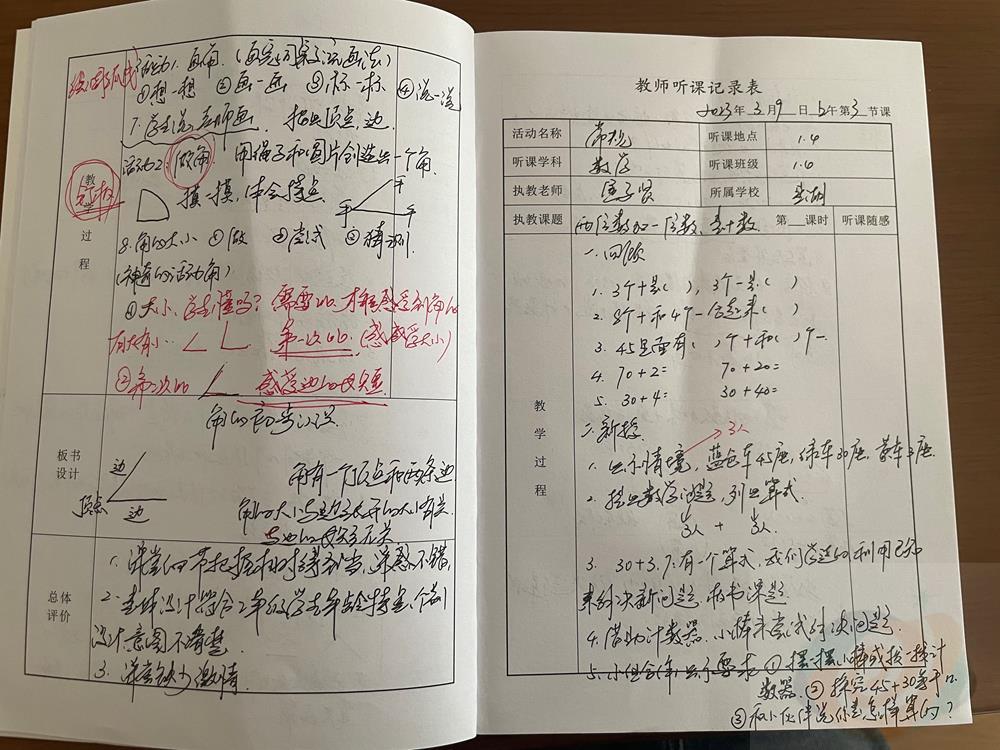 活动1. 画角.(画完同桌交流画法)
①想一想 ②画一画 ③标一标 ④说一说
7. 学生说老师画. 指出顶点,边.
活动2. 做角 用绳子和圆片创造出一个角.
摸一摸,体会特点.
教
学
过
程
8. 角的大小 ①做 ②尝试 ③猜测
(神奇的活动角)
①大小,学生懂吗? 需要比,才能感受到角的
有大有小.. 第一次比(感受大小)
②第二次比 感受边的长短
角的初步认识
板书
设计
边
顶点
边
角有一个顶点和两条边
角的大小与边张开的大小有关
与边的长短无关
总体
评价
1. 课堂的节把握相对得当,课感不错,
2. 整体设计符合2年级学生年龄特点,个别
设计意图不清楚
3. 课堂缺少激情.
教师听课记录表
2023年3月9日 上午第3节课
活动名称 常规 听课地点 1.4
听课学科 数学 听课班级 1.6
执教老师 所属学校
执教课题 两位数加一位数、整十数 第 课时 听课随感
教
学
过
程
一. 回顾
1. 3个十是( ),3个一是( )
2. 8个十和4个一合起来( )
3. 45里面有( )个十和( )个一.
4. 70+2= 70+20=
5. 30+4= 30+40=
二. 新授
3人
1. 出示情境,蓝色车45座,绿车30座,黄车3座
2. 提出数学问题,列出算式.
3. 30+3,只有一个算式,我们学过的,利用已知
来解决新问题. 板书课题.
4. 借助计数器、小棒来尝试解决问题.
5. 小组合作,出示要求 ①摆一摆小棒或拨一拨计
数器. ②探究45+30等于几
③和小伙伴说你是怎样算的?